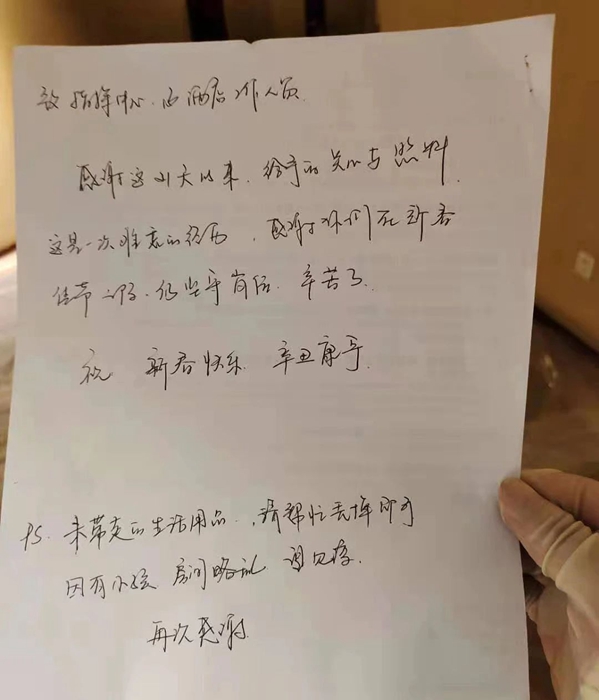 致指挥中心、酒店工作人员
感谢这21天以来，给予的关心与照料，
这是一次难忘的经历，感谢你们在新春
佳节之际，仍坚守岗位，辛苦了。
祝 新春快乐 辛丑康宁。
PS. 未带走的生活用品，请帮忙丢掉即可
因有小孩 房间略乱 请见谅。
再次感谢